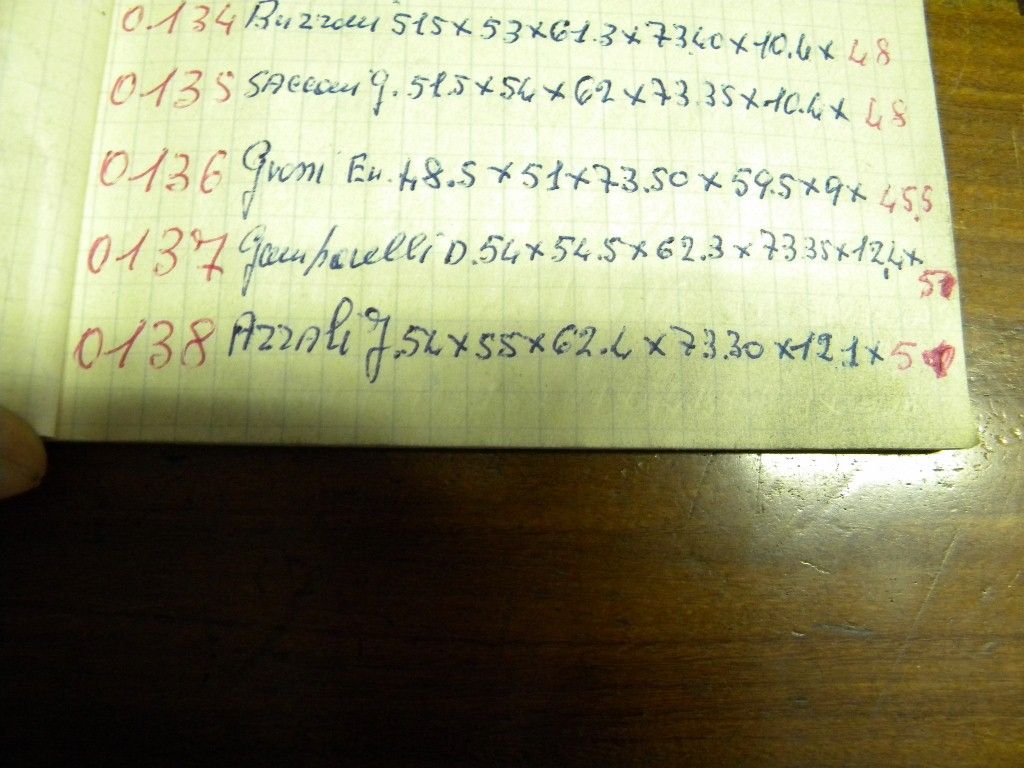 0134 Buzzoni 515x53x61.3x73.40x10.4x 48
0135 SAccani G. 51.5x54x62x73.35x10.4x 48
0136 Grossi En. 48.5x51x73.50x59.5x9x 45.5
0137 Gamparelli D. 54x54.5x62.3x73.35x12,4x 51
0138 AzzAli G. 54x55x62.4x73.30x12.1x 51